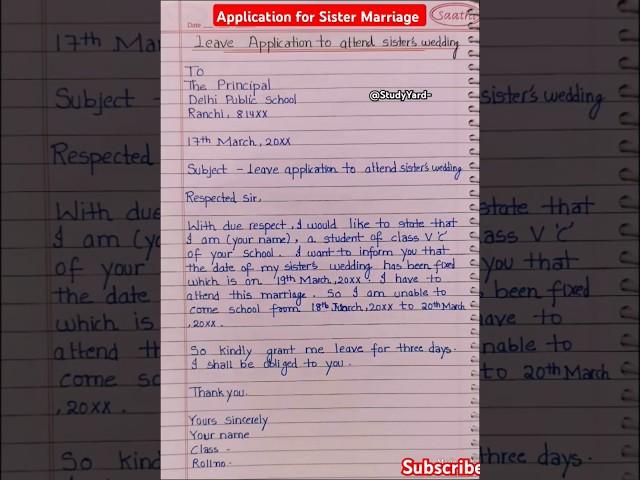 Application for Sister Marriage
Saathi
Date
Leave Application to attend sister's wedding
To
The Principal
Delhi Public School
Ranchi, 814XX
@StudyYard-
17th March, 20XX
Subject - Leave application to attend sister's wedding
Respected sir,
With due respect, I would like to state that
I am (your name), a student of class V 'C'
of your school. I want to inform you that
the date of my sister's wedding has been fixed
which is on 19th March, 20XX. I have to
attend this marriage. So I am unable to
come school from 18th March, 20XX to 20th March
, 20XX.
So kindly grant me leave for three days.
I shall be obliged to you.
Thank you.
Yours sincerely
Your name
Class -
Roll no.
Subscribe